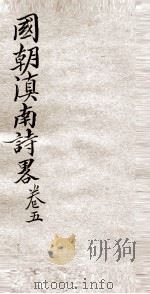 國朝滇南詩畧卷五
詩狗
mtoou.info